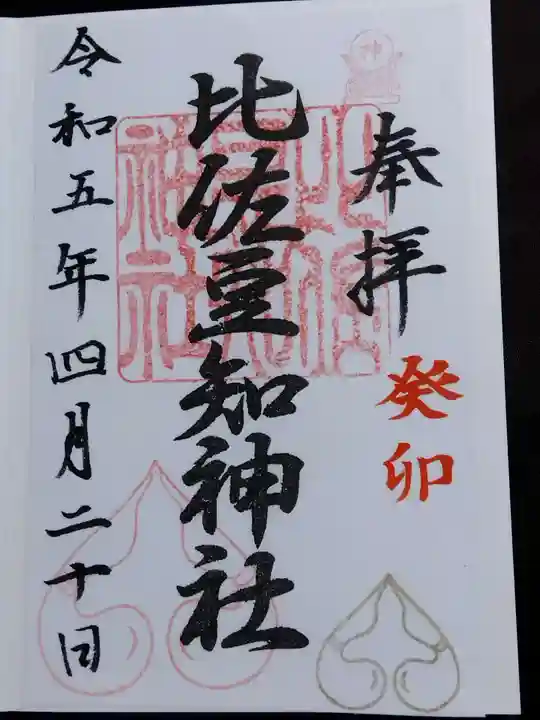 奉拝
癸卯
比佐豆知神社
令和五年四月二十日
神